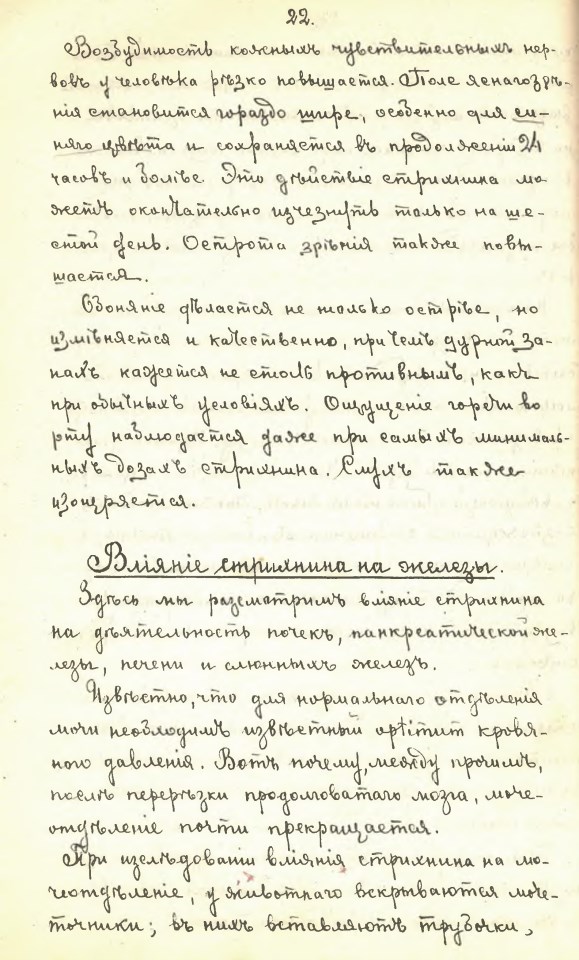 22.
Возбудимость кожныхъ чувствительныхъ нер-
вовъ у человѣка рѣзко повышается. Поле яснагозрѣ-
нія становится гораздо шире, особенно для си-
няго цвѣта и сохраняется въ продолженіи 24
часовъ и болѣе. Это дѣйствіе стрихнина мо-
жетъ окончательно изчезнуть только на ше-
стой день. Острота зрѣнія также повы-
шается.
Обоняніе дѣлается не только острѣе, но
измѣняется и качественно, при чемъ дурной за-
пахъ кажется не столь противнымъ, какъ
при обычныхъ условіяхъ. Ощущеніе горечи во
рту наблюдается даже при самыхъ минималь-
ныхъ дозахъ стрихнина. Слухъ также
изощряется.
Вліяніе стрихнина на железы.
Здѣсь мы разсмотримъ вліяніе стрихнина
на дѣятельность почекъ, панкреатической же-
лезы, печени и слюнныхъ железъ.
Извѣстно, что для нормальнаго отдѣленія
мочи необходимъ извѣстный кровя-
ного давленія. Вотъ почему, между прочимъ,
послѣ перерѣзки продолговатаго мозга, моче-
отдѣленіе почти прекращается.
При изслѣдованіи вліянія стрихнина на мо-
чеотдѣленіе, у животнаго вскрываются моче-
точники; въ нихъ вставляютъ трубочки,